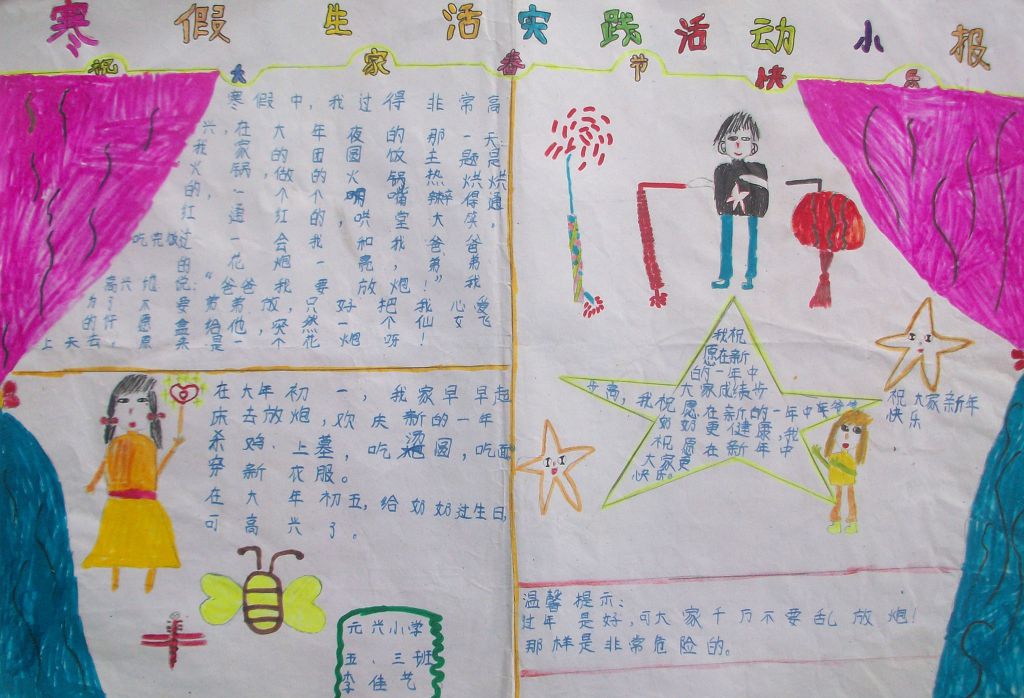 寒假生活实践活动小报
祝大家春节快乐
寒假中,我过得非常高
兴,在大年夜的那一天
我家的团圆饭主题是
火锅,做的火锅热烘烘
的,一个个的明嘴辣得通
红通红的,哄堂大笑。
吃完饭过一会我和我爸爸
的花炮一亮,弟弟
高兴地说:“爸爸我要放炮!”我
为了不要弟弟放,只好把我心爱
的许愿盒给他,突然一个仙女飞
上天去,原来是一个花炮呀!
在大年初一,我家早早起
床去放炮,欢庆新的一年
杀鸡、上墓,吃汤圆,吃面
穿新衣服。
在大年初五,给奶奶过生日,
可高兴了。
元兴小学
五、三班
李佳艺
我祝
愿在新
的一年中
大家成绩步
步高,我祝愿在新的一年中年爷爷
奶奶更健康,我
祝愿在新年中
大家更
快乐。
祝大家新年
快乐
温馨提示:
过年是好,可大家千万不要乱放炮!
那样是非常危险的。